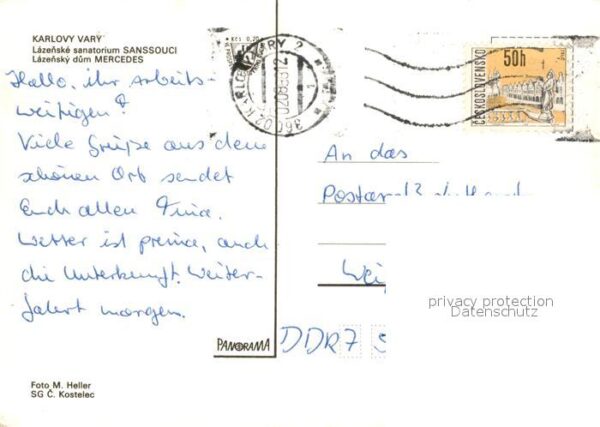 KARLOVY VARY
Lázeňské sanatorium SANSSOUCI
Lázeňský dům MERCEDES
Hallo, ihr Arbeits-
wütigen!
Viele Grüße aus dem
schönen Ort sendet
Euch allen Tina.
Wetter ist prima, auch
die Unterkunft. Weiter-
fahrt morgen.
PANORAMA
Foto M. Heller
SG Č. Kostelec
Kčs 0,20
360 02 KARLOVY VARY 2
ČESKOSLOVENSKO
50h
An das
Postamt
DDR 7
privacy protection
Datenschutz